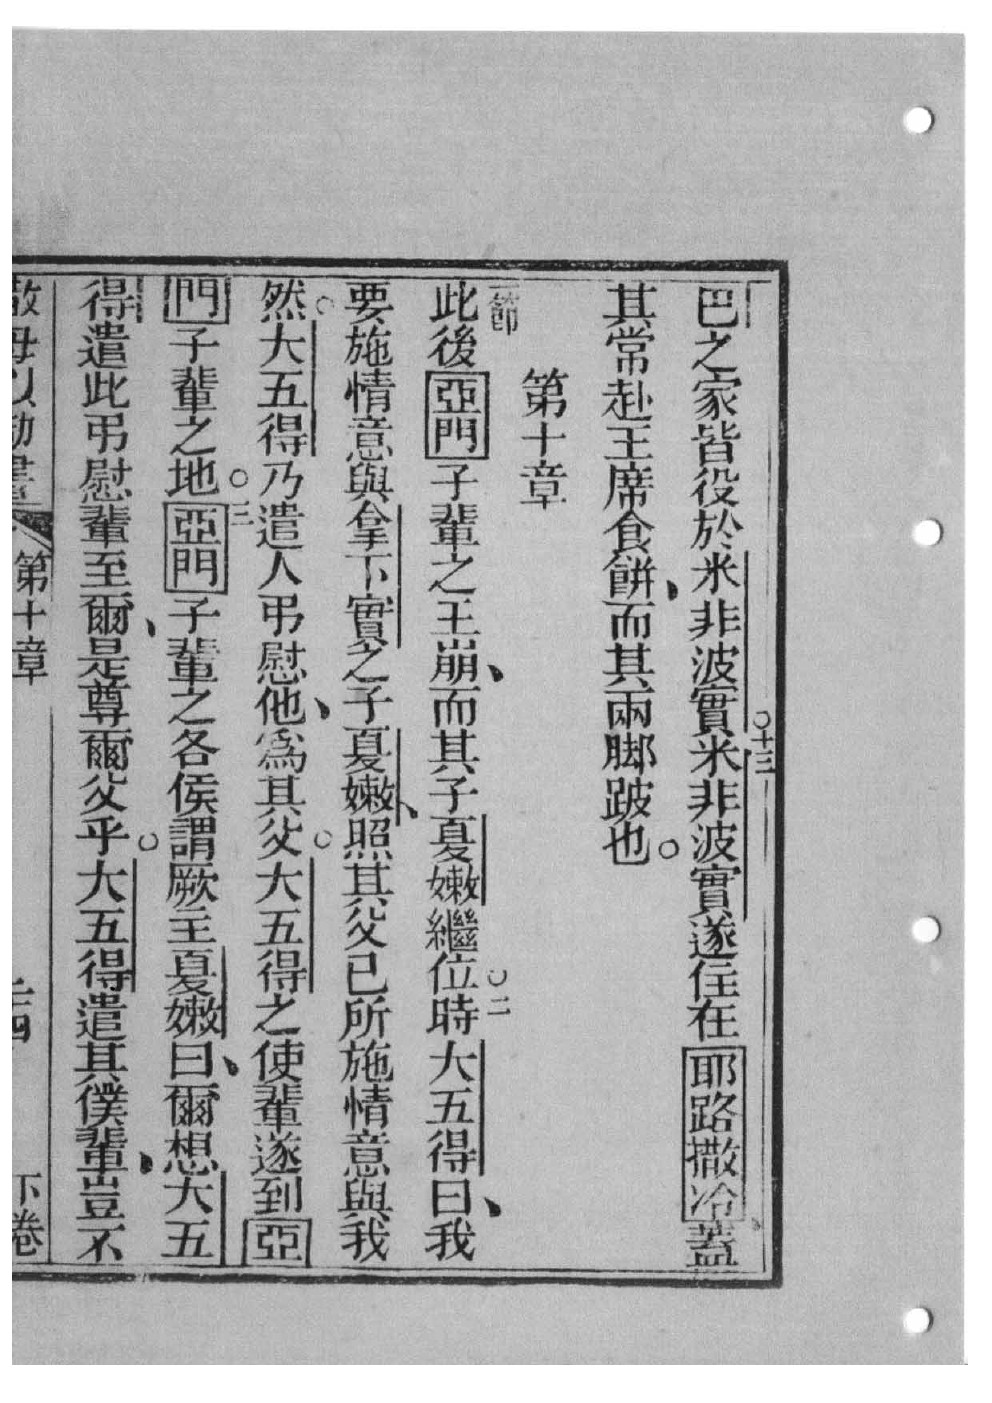 巴之家皆役於米非波實○十三米非波實遂住在耶路撒冷蓋
其常赴王席食餅、而其兩脚跛也○
第十章
一節此後亞門子輩之王崩、而其子夏嫩繼位○二時大五得曰、我
要施情意與拿下實之子夏嫩、照其父已所施情意與我
○然大五得乃遣人弔慰他、為其父○大五得之使輩遂到亞
門子輩之地○三亞門子輩之各侯謂厥主夏嫩曰、爾想大五
得遣此弔慰輩至爾、是尊爾父乎○大五得遣其僕輩、豈不
第十章 下卷